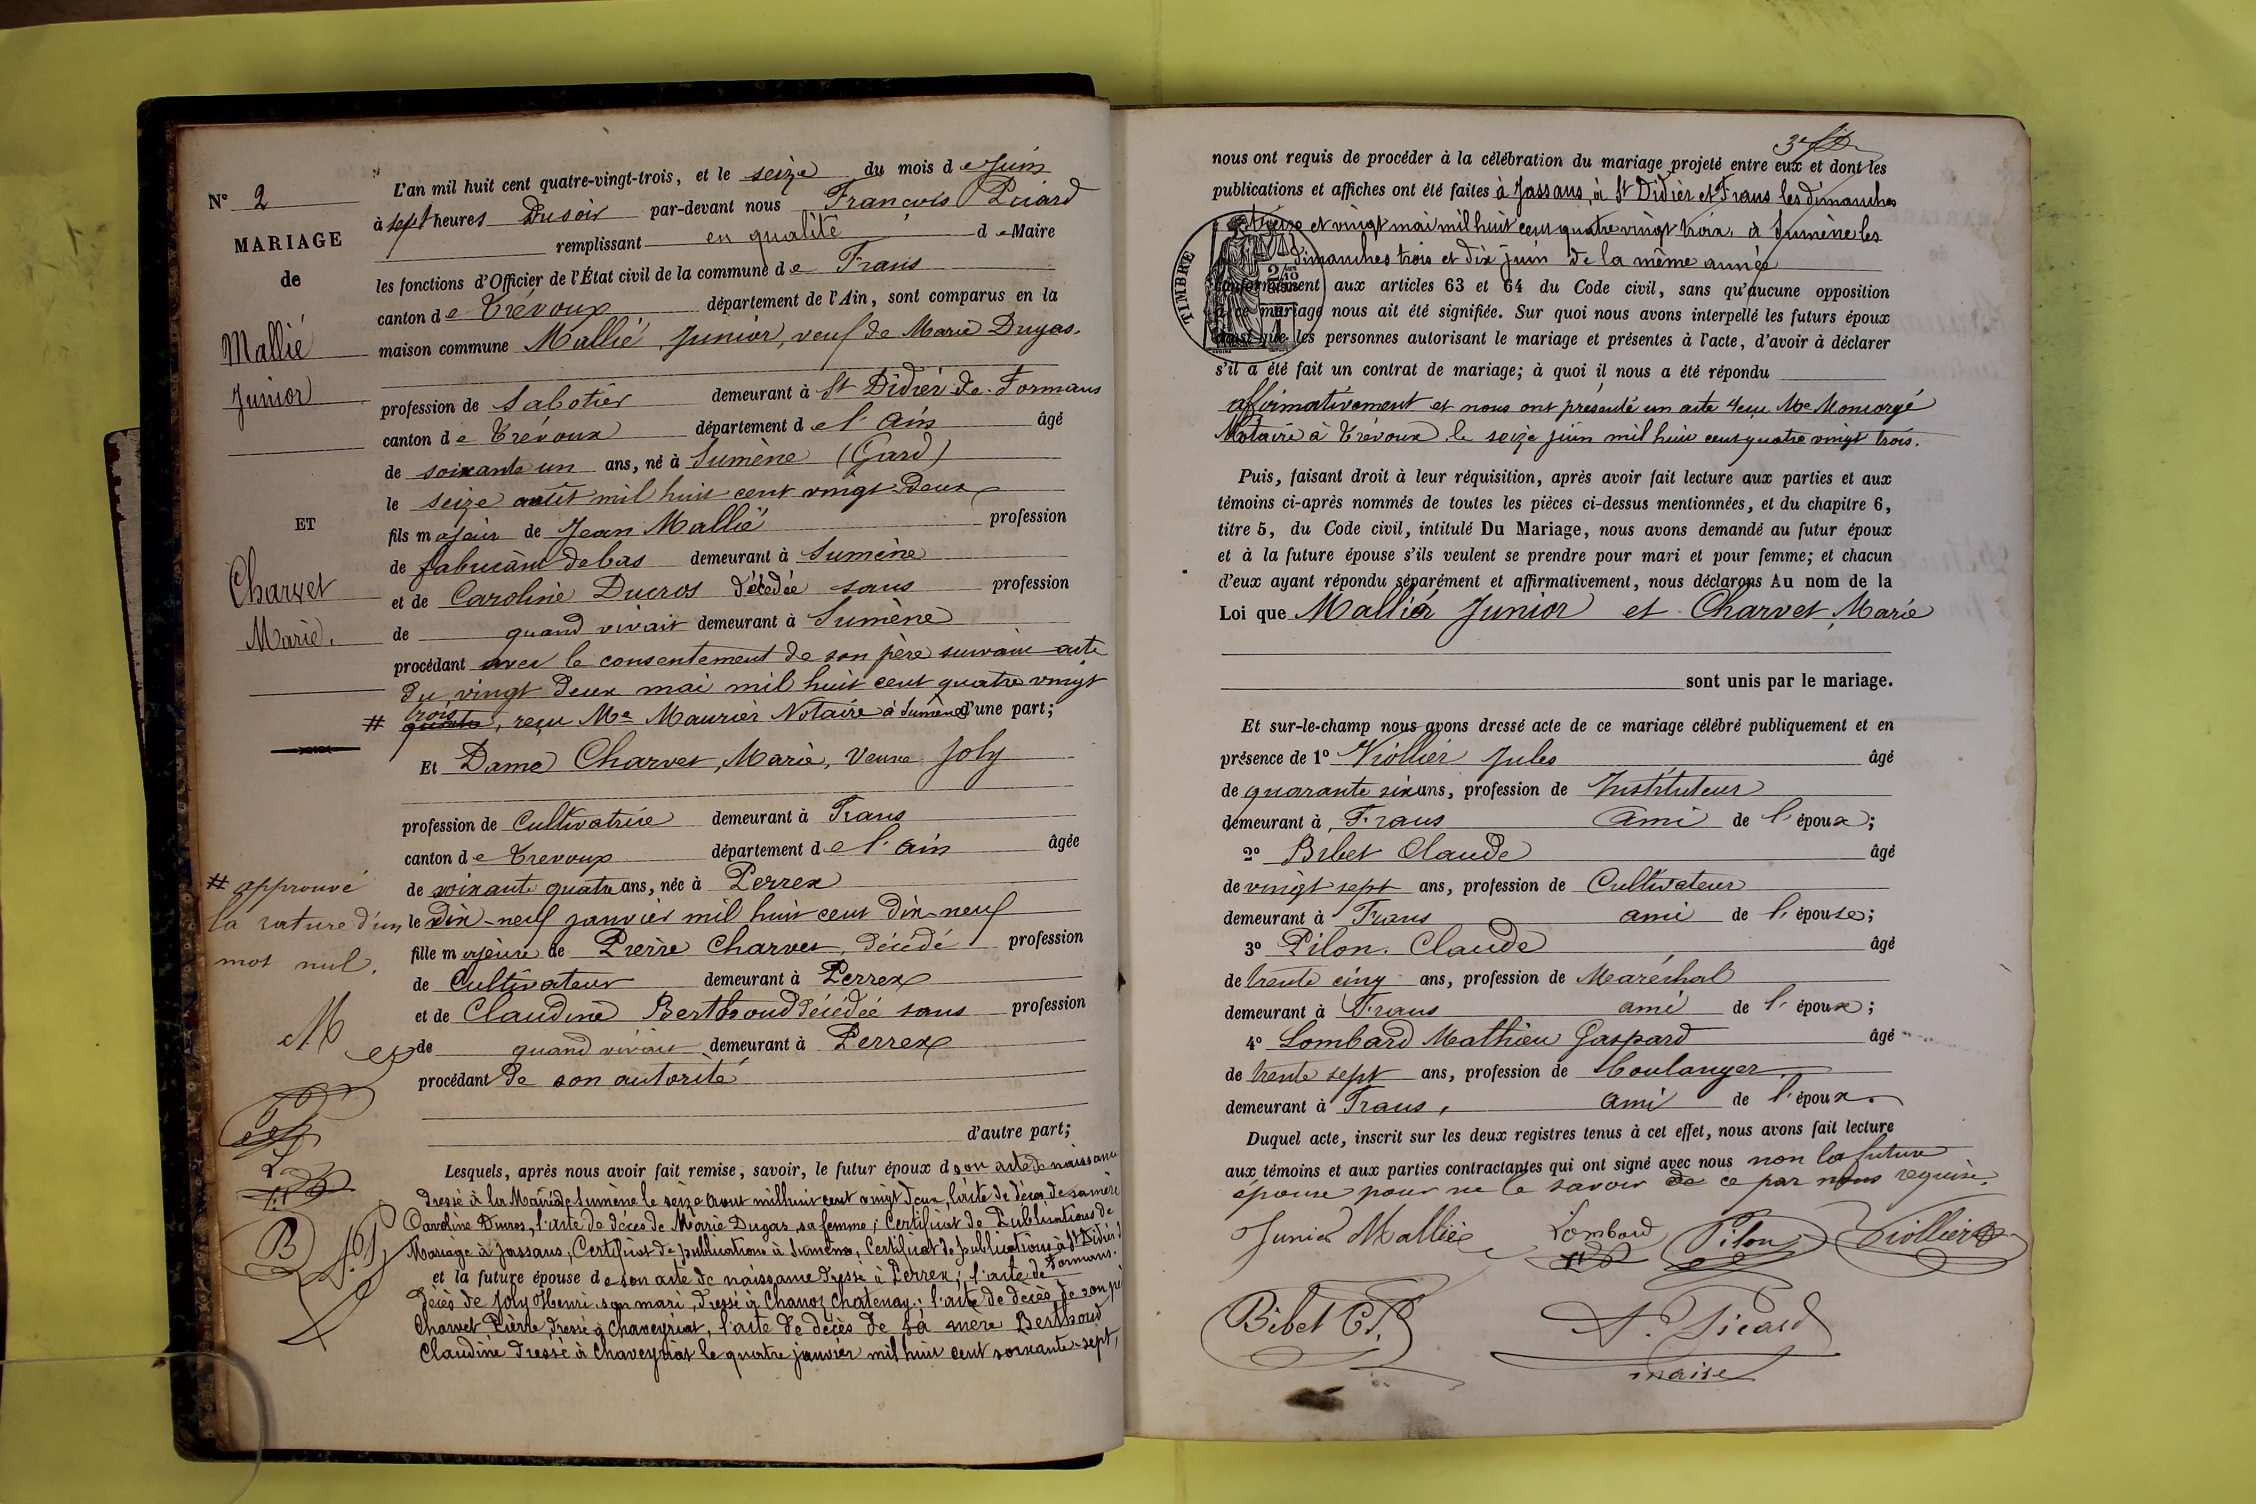 N° 2
MARIAGE
de
Mallié
Junior
ET
Charvet
Marie.
# approuvé
la rature d'un
mot nul.
M
L'an mil huit cent quatre-vingt-trois, et le seize du mois de Juin
à sept heures Du soir par-devant nous François Picard
remplissant en qualité de Maire
les fonctions d'Officier de l'État civil de la commune de Frans
canton de Trévoux département de l'Ain, sont comparus en la
maison commune Mallié, Junior, veuf de Marie Dugas.
profession de Sabotier demeurant à St Didier de Formans
canton de Trévoux département de l'Ain âgé
de soixante un ans, né à Sumène (Gard)
le seize août mil huit cent vingt Deux
fils majeur de Jean Mallié profession
de fabricant de bas demeurant à Sumène
et de Caroline Ducros décédée sans profession
de quand vivait demeurant à Sumène
procédant avec le consentement de son père suivant acte
du vingt deux mai mil huit cent quatre vingt
trois
# quatre, reçu Me Maurier Notaire à Sumène d'une part;
Et Dame Charvet, Marie, Veuve Joly
profession de Cultivatrice demeurant à Frans
canton de Trevoux département de l'Ain âgée
de soixante quatre ans, née à Perrex
le Dix-neuf janvier mil huit cent Dix-neuf
fille majeure de Pierre Charvet, décédé profession
de Cultivateur demeurant à Perrex
et de Claudine Berthoud décédée sans profession
de quand vivait demeurant à Perrex
procédant de son autorité
d'autre part;
Lesquels, après nous avoir fait remise, savoir, le futur époux d son acte de naissance
dressé à la Mairie de Sumène le seize Aout mil huit cent vingt deux, l'acte de décès de sa mère
Caroline Ducros, l'acte de décès de Marie Dugas sa femme; Certificat de Publications de
Mariage à Jassans, Certificat de publications à Sumène, Certificat de publications à St Didier d
Formans.
et la future épouse de son acte de naissance dressé à Perrex; l'acte de
décès de Joly Henri son mari, dressé à Chanoz Chatenay; l'acte de décès de son pè
Charvet Pierre, dressé à Chaveyriat, l'acte de décès de sa mere Berthoud
Claudine dressé à Chaveyriat le quatre janvier mil huit cent soixante-sept,
nous ont requis de procéder à la célébration du mariage projeté entre eux et dont les
publications et affiches ont été faites à Jassans, à St Didier et Frans les dimanches
treize et vingt mai mil huit cent quatre vingt trois, à Sumène les
dimanches trois et dix juin de la même année
conformément aux articles 63 et 64 du Code civil, sans qu'aucune opposition
à ce mariage nous ait été signifiée. Sur quoi nous avons interpellé les futurs époux
ainsi que les personnes autorisant le mariage et présentes à l'acte, d'avoir à déclarer
TIMBRE
s'il a été fait un contrat de mariage; à quoi il nous a été répondu
affirmativement et nous ont présenté un acte reçu Me Moncorgé
Notaire à Trévoux le seize juin mil huit cent quatre vingt trois.
Puis, faisant droit à leur réquisition, après avoir fait lecture aux parties et aux
témoins ci-après nommés de toutes les pièces ci-dessus mentionnées, et du chapitre 6,
titre 5, du Code civil, intitulé Du Mariage, nous avons demandé au futur époux
et à la future épouse s'ils veulent se prendre pour mari et pour femme; et chacun
d'eux ayant répondu séparément et affirmativement, nous déclarons Au nom de la
Loi que Mallié Junior et Charvet Marie
sont unis par le mariage.
Et sur-le-champ nous avons dressé acte de ce mariage célébré publiquement et en
présence de 1° Viollier Jules âgé
de quarante six ans, profession de Instituteur
demeurant à Frans Ami de l'époux;
2° Bibet Claude âgé
de vingt sept ans, profession de Cultivateur
demeurant à Frans ami de l'épouse;
3° Pilon Claude âgé
de trente cinq ans, profession de Maréchal
demeurant à Frans ami de l'époux;
4° Lombard Mathieu Gaspard âgé
de trente sept ans, profession de boulanger
demeurant à Frans, ami de l'époux.
Duquel acte, inscrit sur les deux registres tenus à cet effet, nous avons fait lecture
aux témoins et aux parties contractantes qui ont signé avec nous non la future
épouse pour ne le savoir de ce par nous requise.
Junior Mallié Lombard Pilon Viollier
Bibet Cl. F. Picard
maire